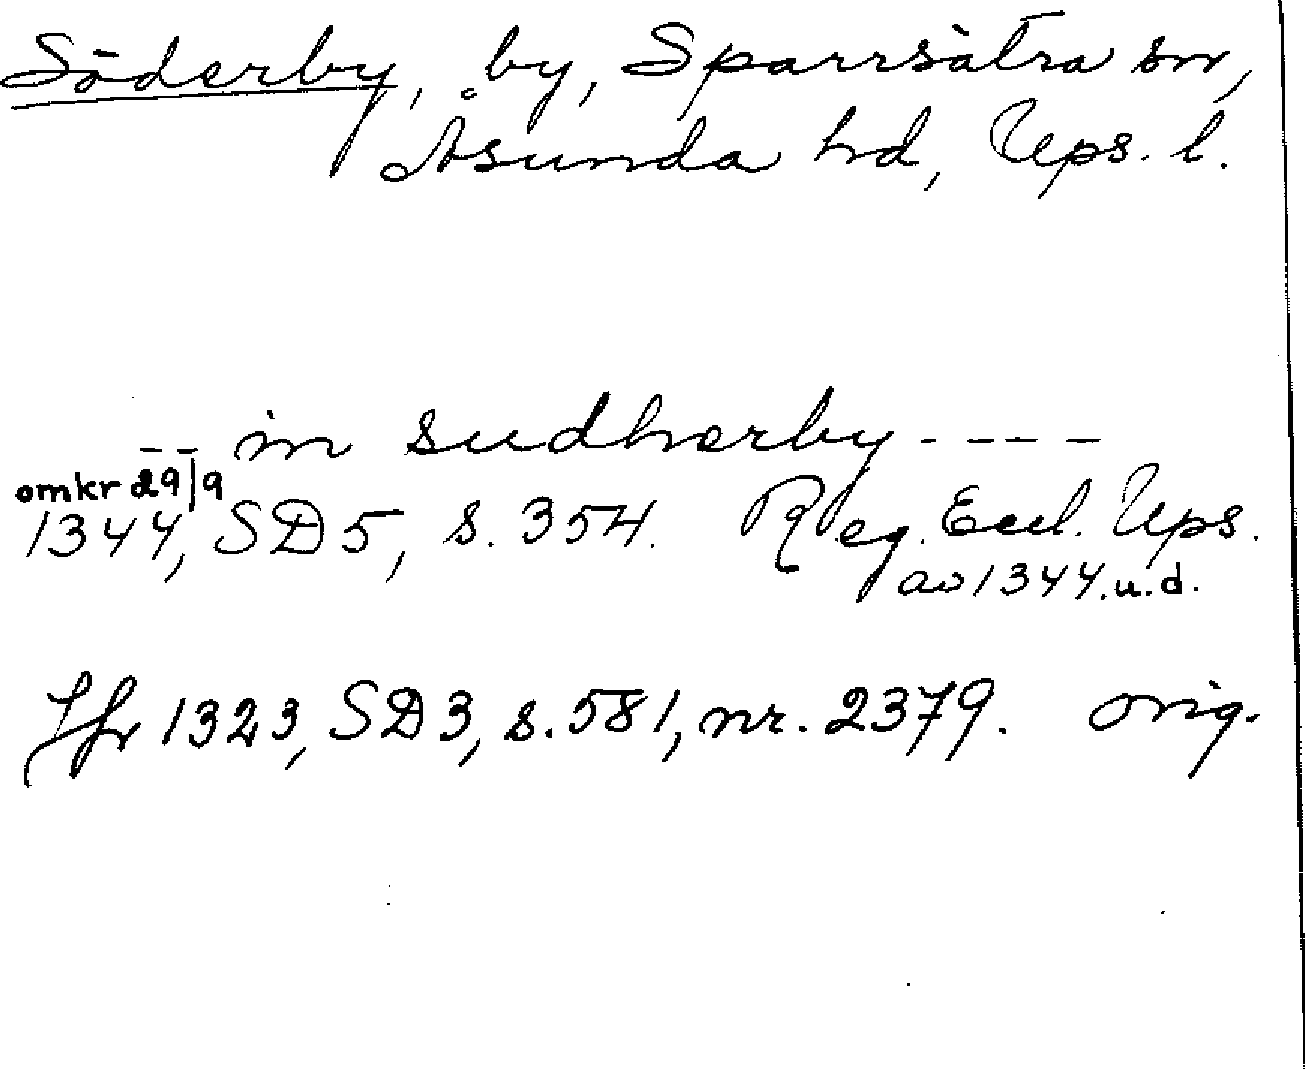 Söderby, by, Sparrsätra sn,
Åsunda hd, Ups. l.
-- in sudherby ----
omkr 29/9
1344, SD5, s. 354. Reg. Eccl. Ups.
av 1344. u. d.
Jfr 1323, SD3, s. 581, nr. 2379. orig.